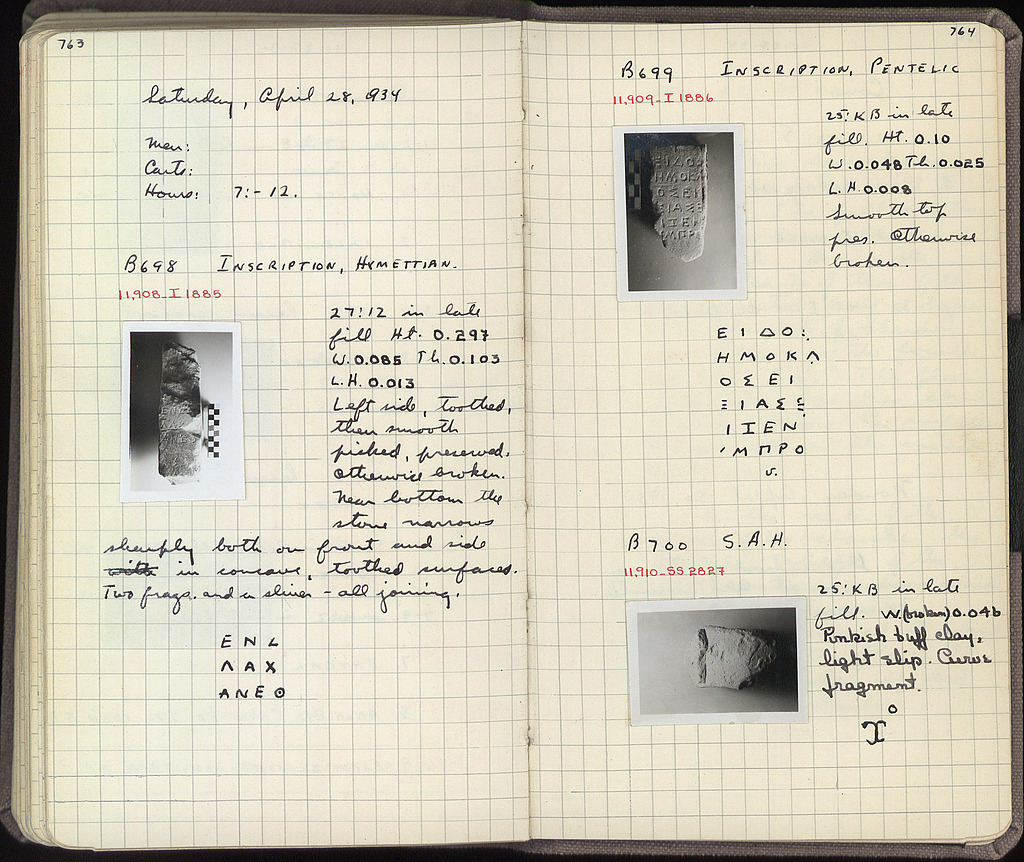 763
Saturday, April 28, 1934
Men:
Carts:
Hours: 7:- 12.
B698 INSCRIPTION, HYMETTIAN.
11,908_I 1885
27:12 in late
fill Ht. 0.297
W. 0.085 Th. 0.103
L.H. 0.013
Left side, toothed,
then smooth
picked, preserved.
Otherwise broken.
Near bottom the
stone narrows
sharply both on front and side
in concave, toothed surfaces.
Two frags. and a sliver - all joining.
Ε Ν Ι
Λ Α Χ
Α Ν Ε Θ
764
B699 INSCRIPTION, PENTELIC
11,909_I 1886
25:KB in late
fill. Ht. 0.10
W. 0.048 Th. 0.025
L.H. 0.008
Smooth top
pres. Otherwise
broken.
Ε Ι Δ Ο :
Η Μ Ο Κ Λ
Ο Σ Ε Ι
Ξ Ι Α Σ Ξ
Ι Ι Ε Ν
Μ Π Ρ Ο
v.
B700 S.A.H.
11,910_SS 2827
25:KB in late
fill. W. (broken) 0.046
Pinkish buff clay,
light slip. Curve
fragment.